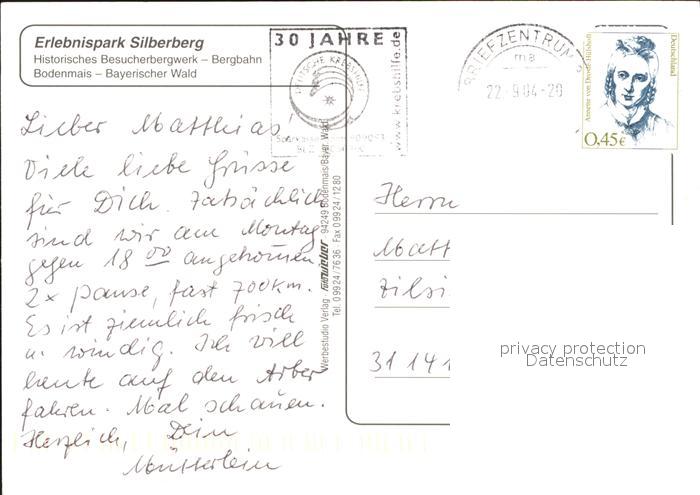 Erlebnispark Silberberg
Historisches Besucherbergwerk – Bergbahn
Bodenmais – Bayerischer Wald
30 JAHRE
DEUTSCHE KREBSHILFE
www.krebshilfe.de
BRIEFZENTRUM
ma
22.-9.04-20
Annette von Droste-Hülshoff
Deutschland
0,45€
Lieber Matthias!
Viele liebe Grüsse
für Dich. Tatsächlich
sind wir am Montag
gegen 18 00 angekommen
2x Pause, fast 700km.
Es ist ziemlich frisch
u. windig. Ich will
heute auf den Arber
fahren. Mal schauen.
Herzlich, Dein
Mütterlein
Werbestudio Verlag · 94249 Bodenmais/Bayer. Wald
Tel. 09924/7636 · Fax 09924/1280
Herrn
Matt
Zilsi
31 141
privacy protection
Datenschutz